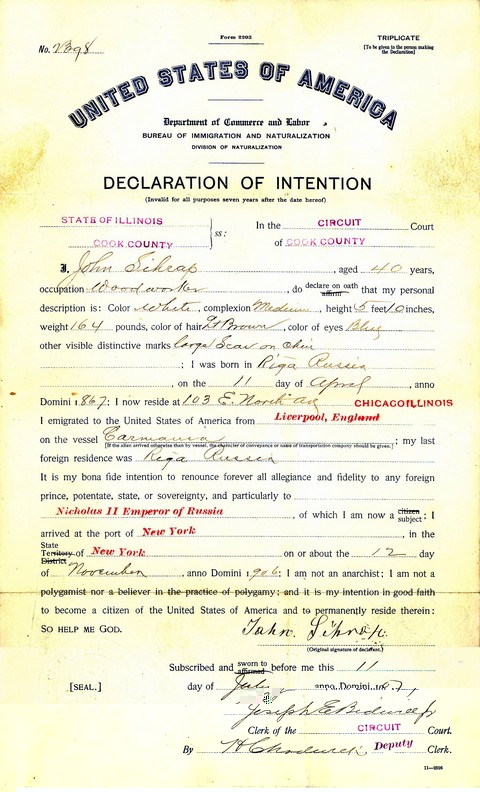 Form 2203
TRIPLICATE
[To be given to the person making the Declaration]
No.
UNITED STATES OF AMERICA
Department of Commerce and Labor
BUREAU OF IMMIGRATION AND NATURALIZATION
DIVISION OF NATURALIZATION
DECLARATION OF INTENTION
(Invalid for all purposes seven years after the date hereof)
STATE OF ILLINOIS
COOK COUNTY
ss:
In the CIRCUIT Court
of COOK COUNTY
I, John, aged 40 years,
occupation Woodworker, do declare on oath affirm that my personal
description is: Color White, complexion Medium, height 5 feet 10 inches,
weight 164 pounds, color of hair Lt Brown, color of eyes Blue
other visible distinctive marks large Scar on Chin
; I was born in Riga Russia
, on the 11 day of April, anno
Domini 1867; I now reside at 103 E. North Av CHICAGO ILLINOIS
I emigrated to the United States of America from Liverpool, England
on the vessel Carmania; my last
[If the alien arrived otherwise than by vessel, the character of conveyance or name of transportation company should be given.]
foreign residence was Riga Russia
It is my bona fide intention to renounce forever all allegiance and fidelity to any foreign
prince, potentate, state, or sovereignty, and particularly to
Nicholas II Emperor of Russia, of which I am now a citizen subject; I
arrived at the port of New York, in the
State Territory District of New York on or about the 12 day
of November, anno Domini 1906; I am not an anarchist; I am not a
polygamist nor a believer in the practice of polygamy; and it is my intention in good faith
to become a citizen of the United States of America and to permanently reside therein:
SO HELP ME GOD.
John
(Original signature of declarant.)
Subscribed and sworn to affirmed before me this 11
[SEAL.]
day of July, anno Domini 1907,
Joseph E Bidwill Jr
Clerk of the CIRCUIT Court.
By Deputy Clerk.